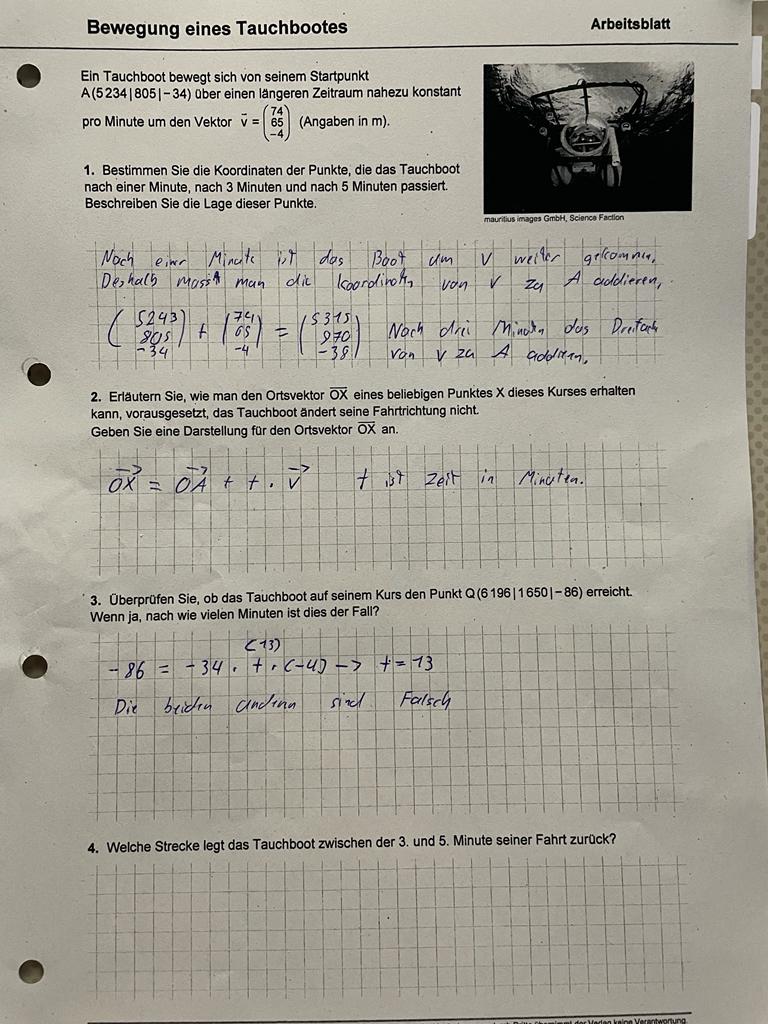 Bewegung eines Tauchbootes
Arbeitsblatt
Ein Tauchboot bewegt sich von seinem Startpunkt
A(5 234|805|–34) über einen längeren Zeitraum nahezu konstant
pro Minute um den Vektor v⃗ = (74 65 –4) (Angaben in m).
mauritius images GmbH, Science Faction
1. Bestimmen Sie die Koordinaten der Punkte, die das Tauchboot
nach einer Minute, nach 3 Minuten und nach 5 Minuten passiert.
Beschreiben Sie die Lage dieser Punkte.
Nach einer Minute ist das Boot um V weiter gekommen,
Deshalb muss man die Koordinaten von V zu A addieren,
(5243 805 -34) + (74 65 -4) = (5315 970 -38) Nach drei Minuten das Dreifach
von V zu A addieren,
2. Erläutern Sie, wie man den Ortsvektor OX eines beliebigen Punktes X dieses Kurses erhalten
kann, vorausgesetzt, das Tauchboot ändert seine Fahrtrichtung nicht.
Geben Sie eine Darstellung für den Ortsvektor OX an.
OX = OA + t · v t ist Zeit in Minuten.
3. Überprüfen Sie, ob das Tauchboot auf seinem Kurs den Punkt Q(6 196|1 650|–86) erreicht.
Wenn ja, nach wie vielen Minuten ist dies der Fall?
(13)
-86 = -34 · t · (-4) -> t = 13
Die beiden andern sind Falsch
4. Welche Strecke legt das Tauchboot zwischen der 3. und 5. Minute seiner Fahrt zurück?
Dritte übernimmt der Verlag keine Verantwortung.